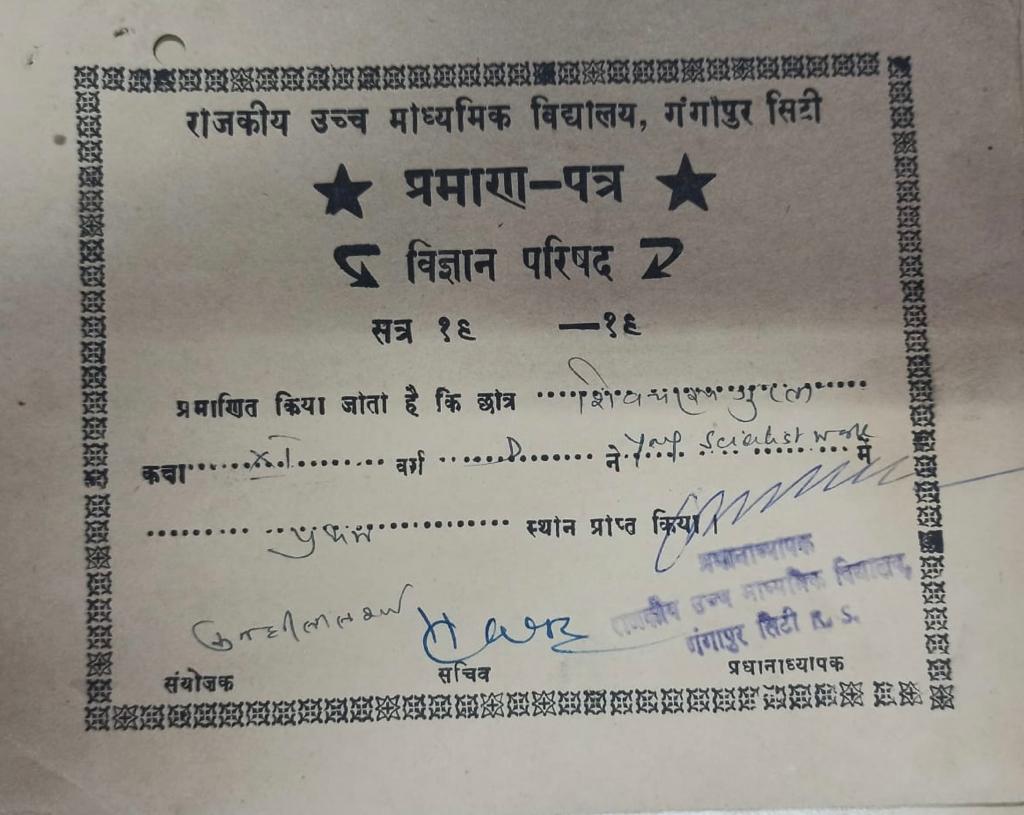 राजकीय उच्च माध्यमिक विद्यालय, गंगापुर सिटी
प्रमाण-पत्र
विज्ञान परिषद
सत्र १९ —१९
प्रमाणित किया जाता है कि छात्र
कक्षा XI वर्ग D ने Scientist work में
प्रथम स्थान प्राप्त किया।
प्रधानाध्यापक
राजकीय उच्च माध्यमिक विद्यालय,
गंगापुर सिटी R. S.
संयोजक सचिव प्रधानाध्यापक